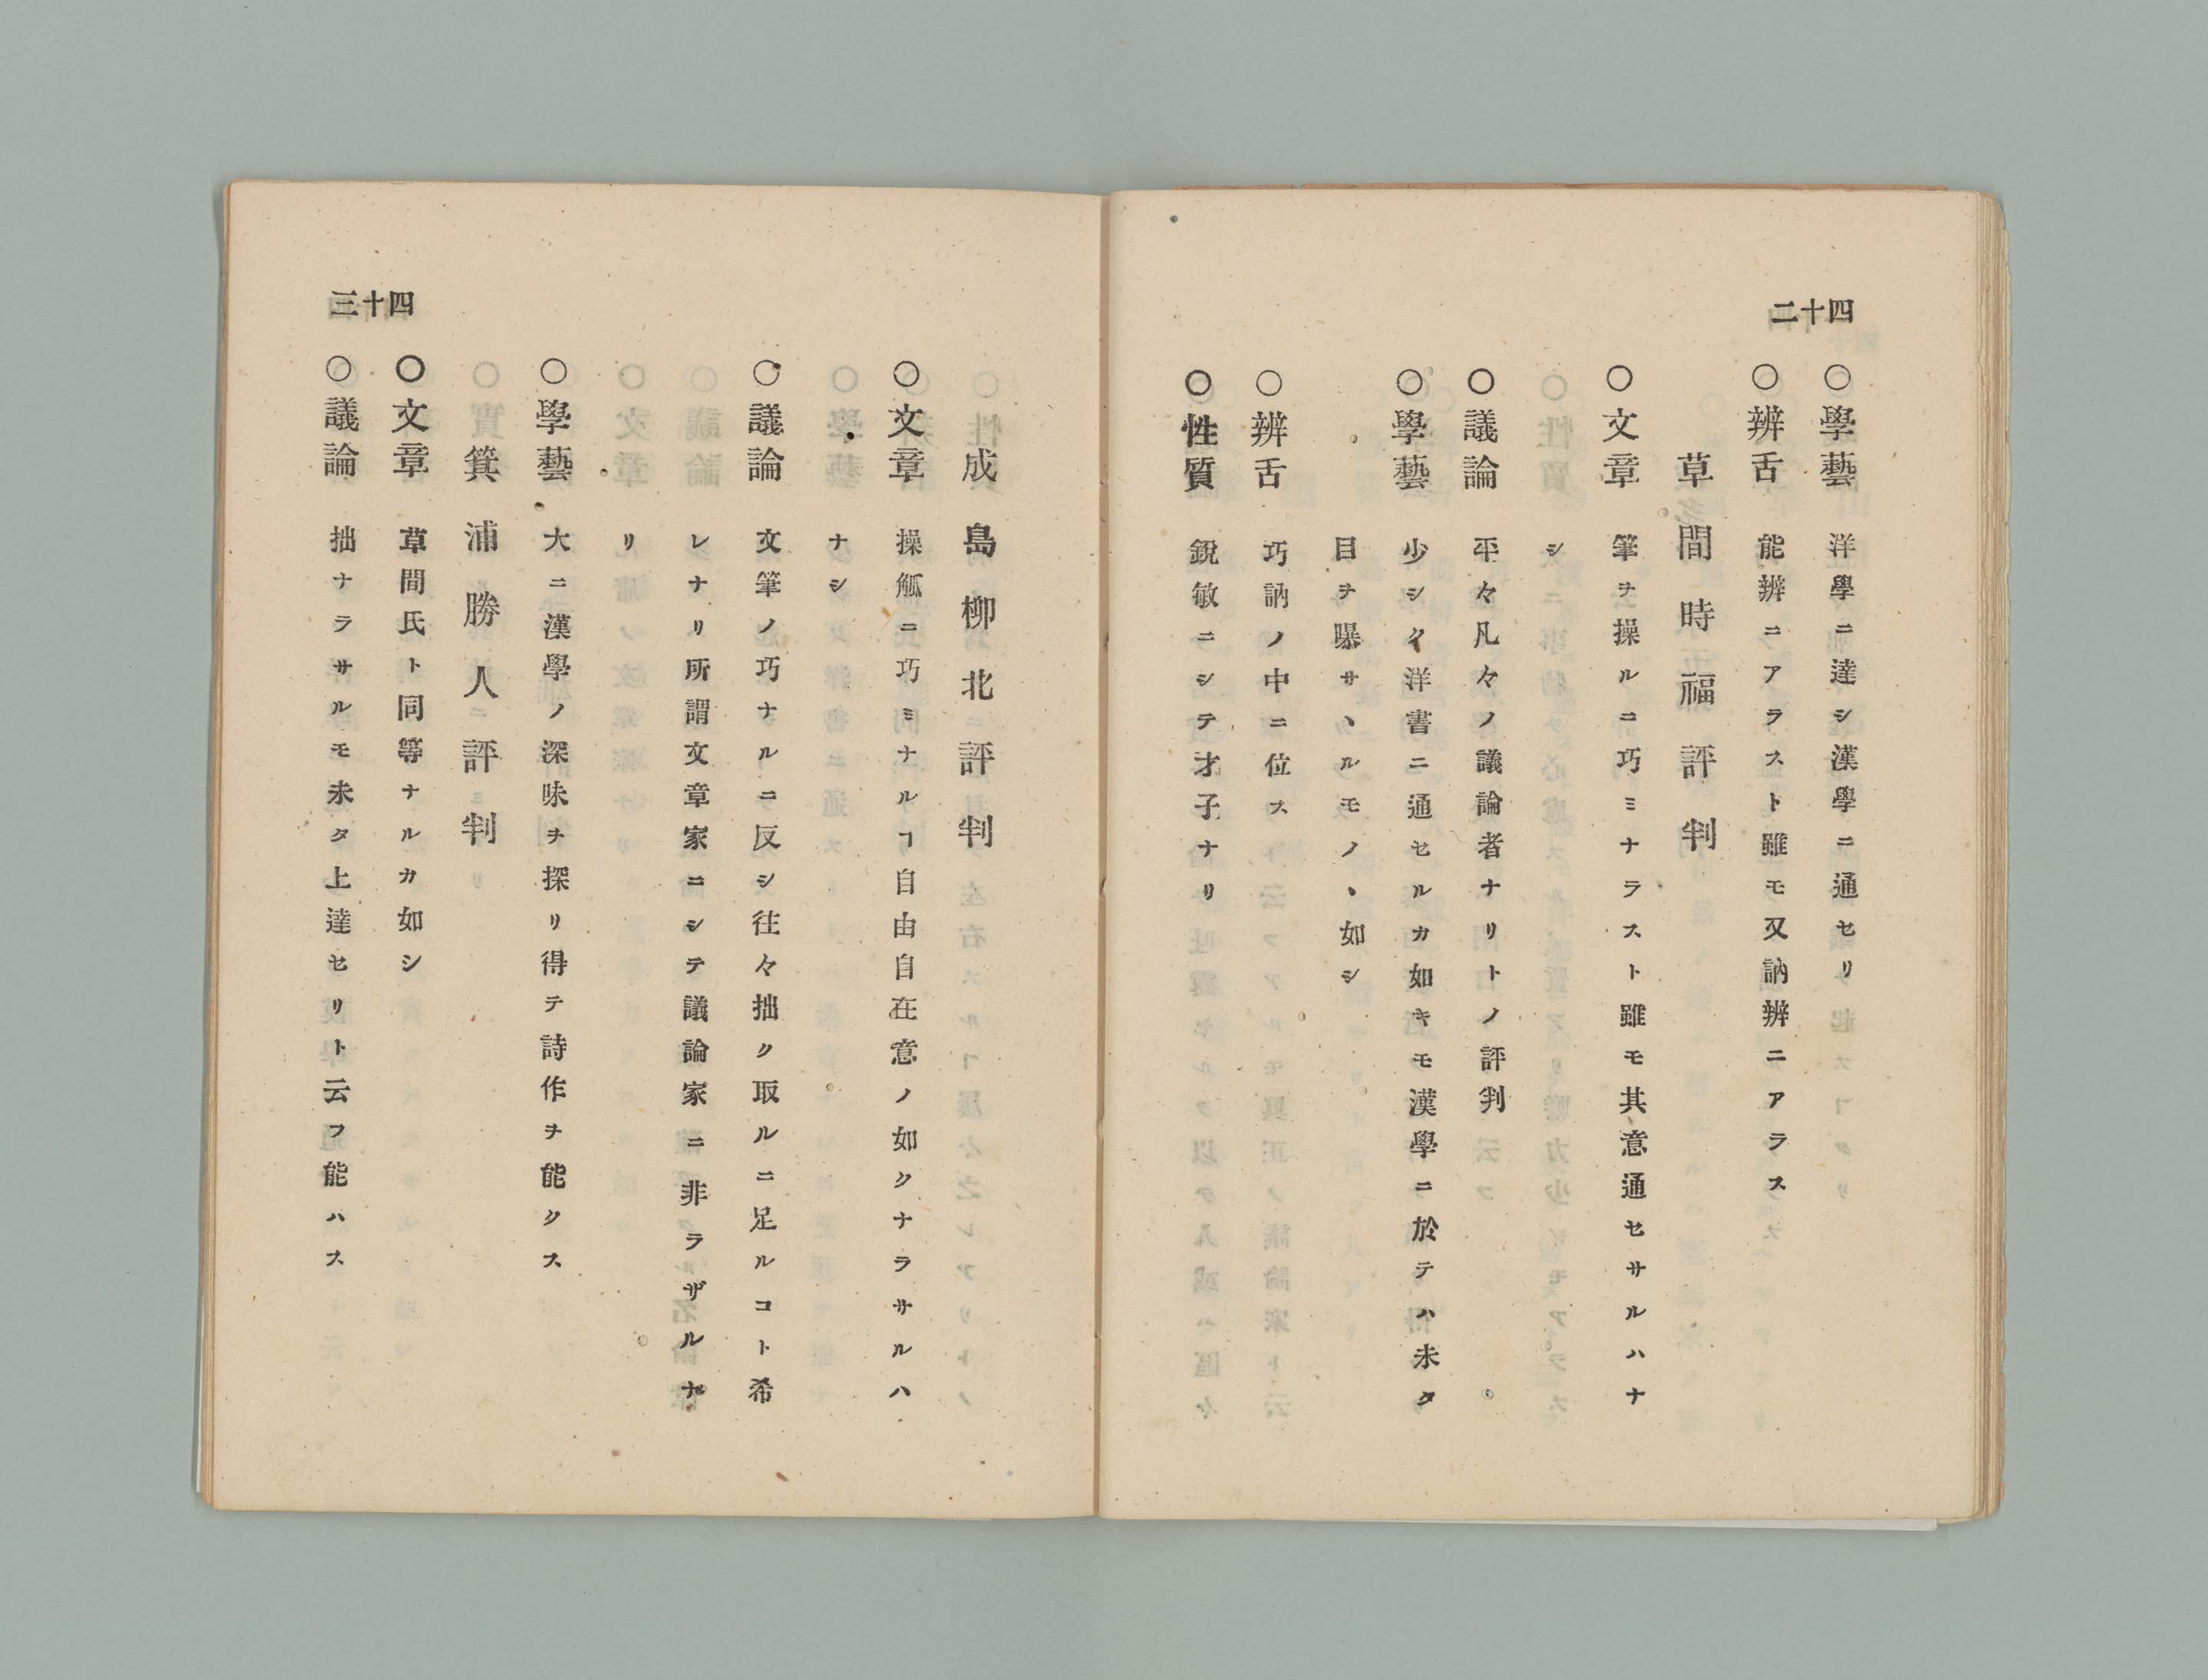 四十二
○學藝　洋學ニ達シ漢學ニ通セリ
○辨舌　能辨ニアラスト雖モ又訥辨ニアラス
草間時福評判
○文章　筆ヲ操ルニ巧ミナラスト雖モ其意通セサルハナ
シ
○議論　平々凡々ノ議論者ナリトノ評判
○學藝　少シク洋書ニ通セルカ如キモ漢學ニ於テハ未タ
目ヲ曝サヽルモノヽ如シ
○辨舌　巧訥ノ中ニ位ス
○性質　鋭敏ニシテ才子ナリ
四十三
成島柳北評判
○文章　操觚ニ巧ミナルヿ自由自在意ノ如クナラサルハ
ナシ
○議論　文筆ノ巧ナルニ反シ往々拙ク取ルニ足ルコト希
レナリ所謂文章家ニシテ議論家ニ非ラザルナ
リ
○學藝　大ニ漢學ノ深味ヲ探リ得テ詩作ヲ能クス
箕浦勝人評判
○文章　草間氏ト同等ナルカ如シ
○議論　拙ナラサルモ未タ上達セリト云フ能ハス